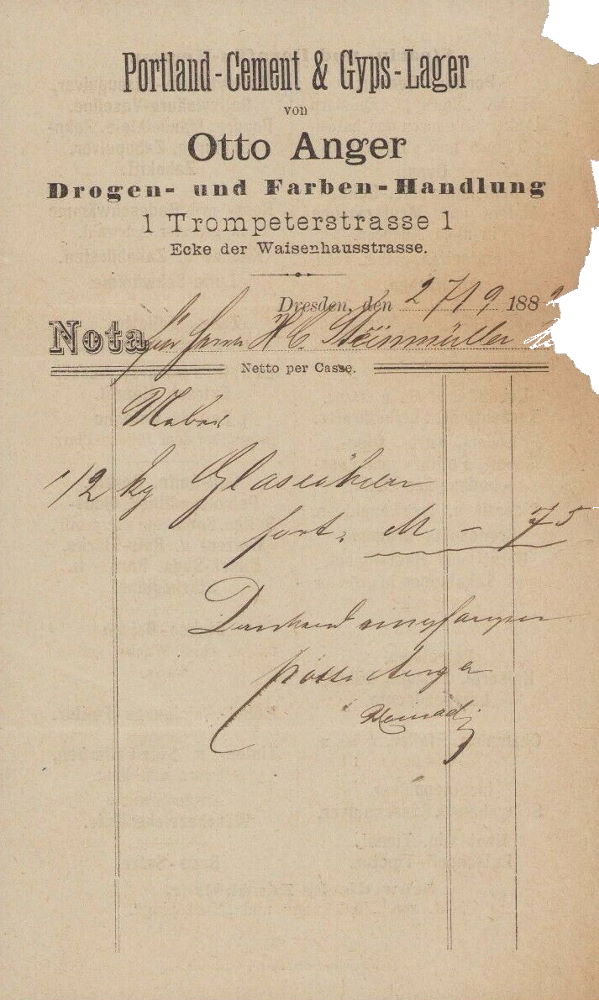 Portland-Cement & Gyps-Lager
von
Otto Anger
Drogen- und Farben-Handlung
1 Trompeterstrasse 1
Ecke der Waisenhausstrasse.
Dresden, den 27/9 188
Nota für Herrn H C. Steinmüller
Netto per Casse.
1/2 kg
M – 75
Dankend empfangen
Otto Anger